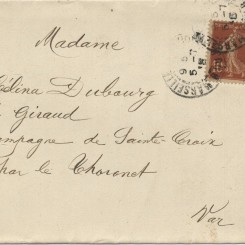 Madame
élina Dubourg
Giraud
mpagne de Sainte-Croix
par le Thoronet
Var
MARSEILLE
5-7